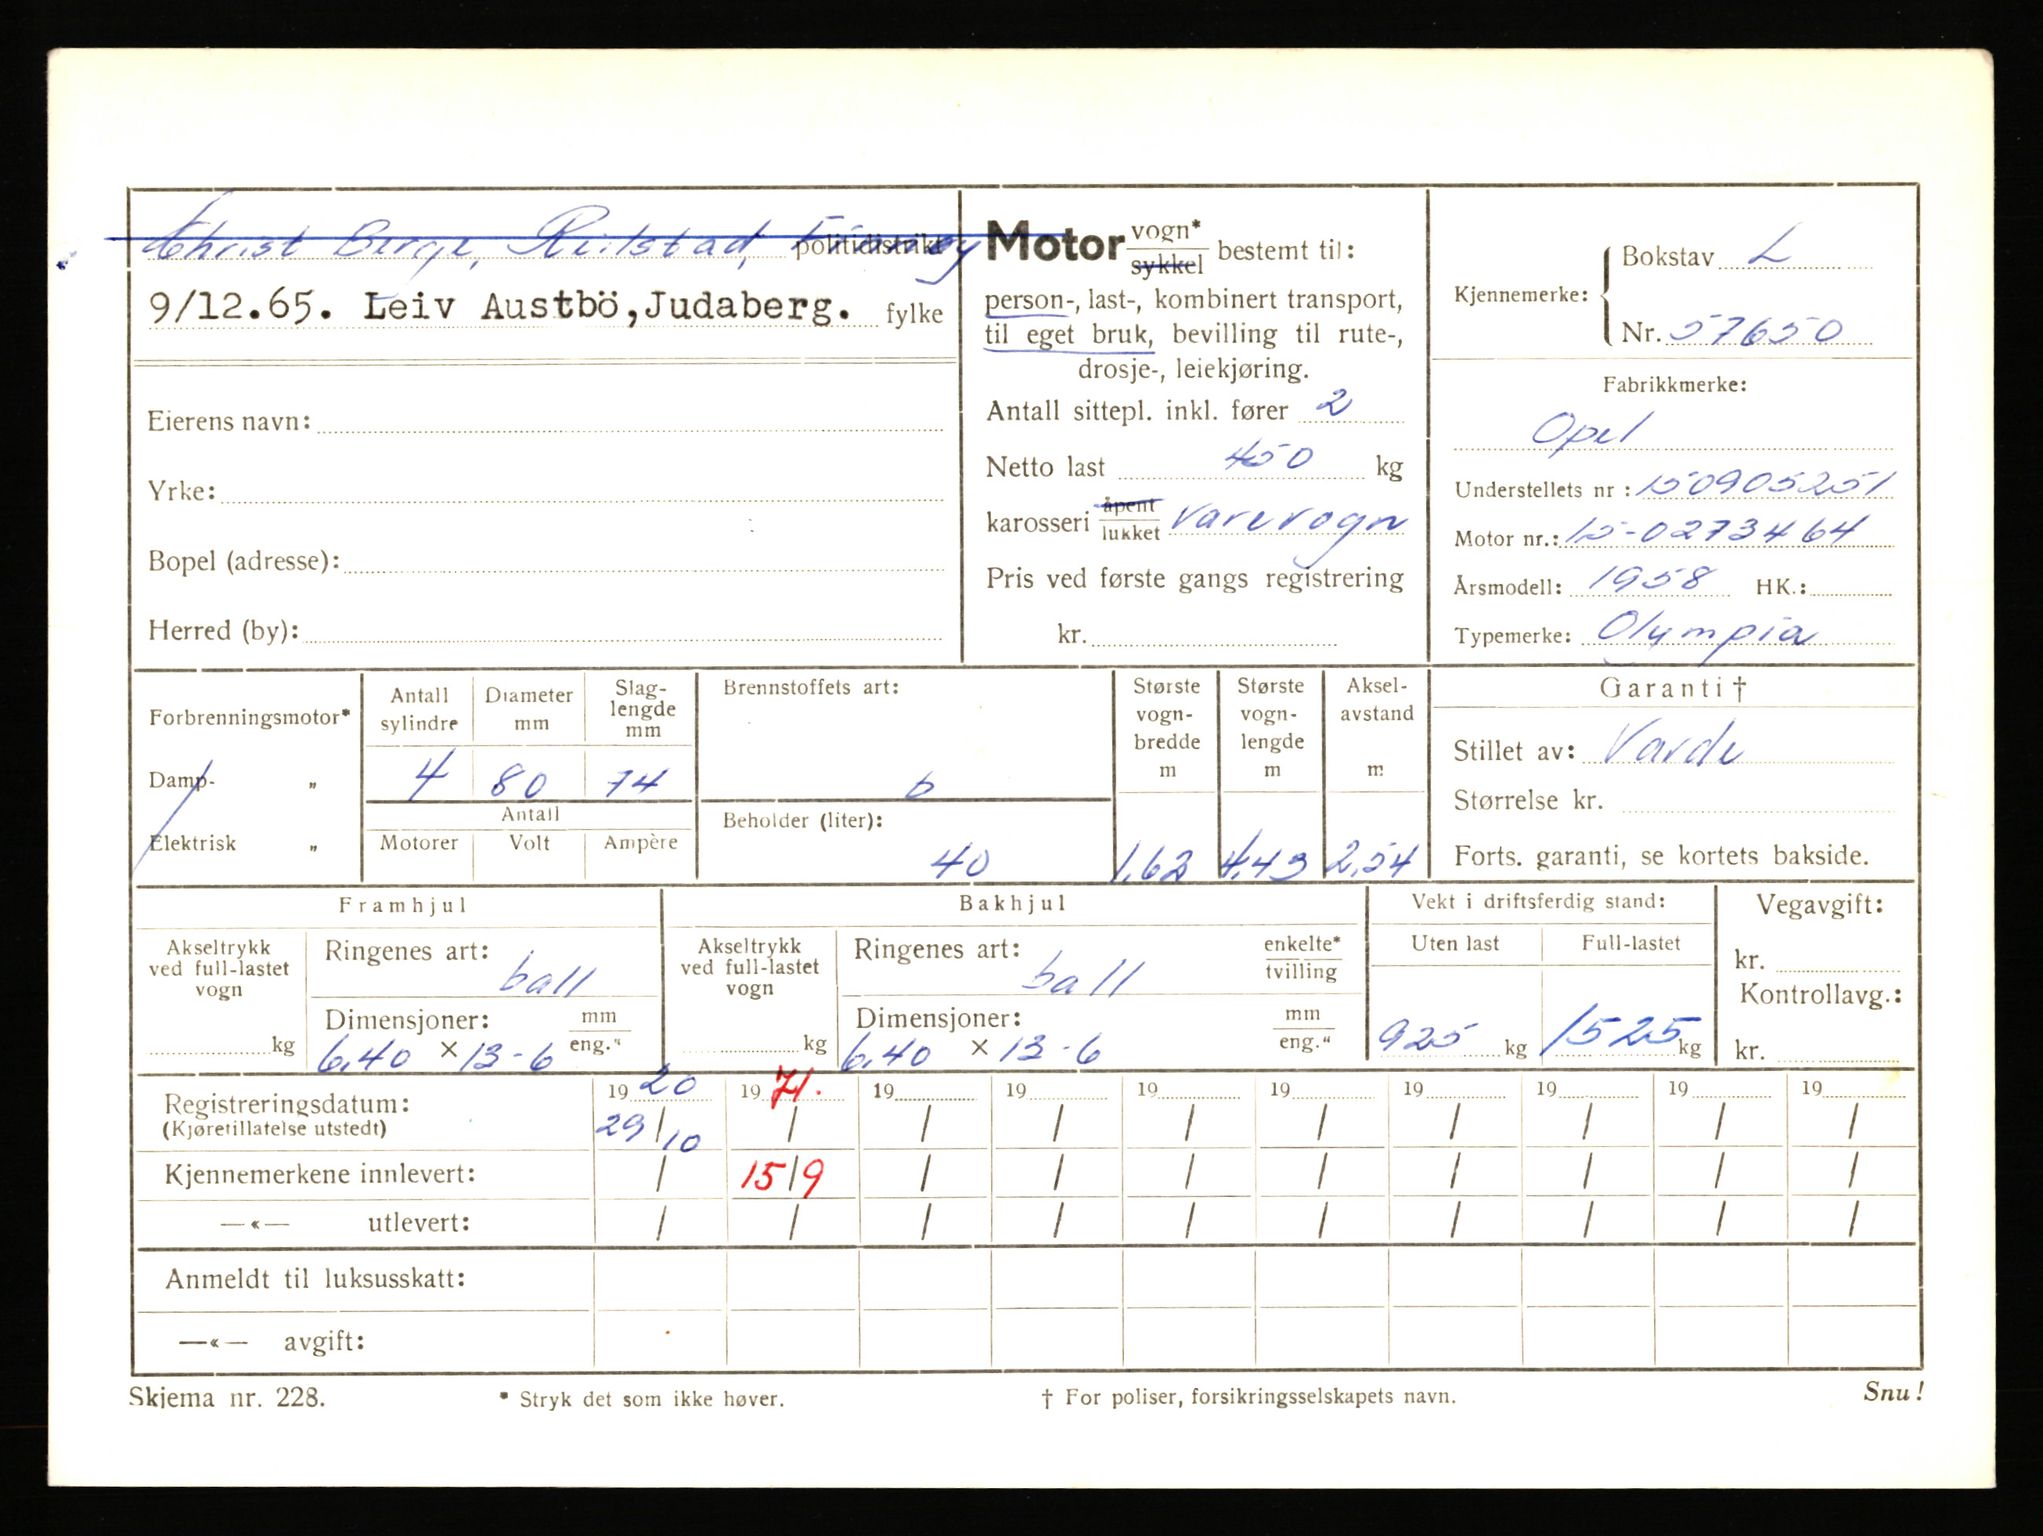 Christ Berge, politidistrikt
9/12.65. Leiv Austbö,Judaberg. fylke
Eierens navn:
Yrke:
Bopel (adresse):
Herred (by):
Motor vogn* sykkel bestemt til:
person-, last-, kombinert transport,
til eget bruk, bevilling til rute-,
drosje-, leiekjøring.
Antall sittepl. inkl. fører 2
Netto last 450 kg
karosseri åpent lukket varevogn
Pris ved første gangs registrering
kr.
Kjennemerke: Bokstav L
Nr. 57650
Fabrikkmerke:
Opel
Understellets nr : 150905251
Motor nr.: 15-0273464
Årsmodell: 1958 HK.:
Typemerke: Olympia
Forbrenningsmotor*
Damp- „
Elektrisk „
Antall sylindre
4
Diameter mm
80
Slag-lengde mm
74
Antall
Motorer Volt Ampère
Brennstoffets art:
b
Beholder (liter):
40
Største vogn-bredde m
1,63
Største vogn-lengde m
4,43
Aksel-avstand m
2,54
Garanti †
Stillet av: Varde
Størrelse kr.
Forts. garanti, se kortets bakside.
Framhjul
Akseltrykk ved full-lastet vogn
kg
Ringenes art:
ball
Dimensjoner: mm eng."
6,40 × 13-6
Bakhjul
Akseltrykk ved full-lastet vogn
kg
Ringenes art: enkelte* tvilling
ball
Dimensjoner: mm eng."
6,40 × 13-6
Vekt i driftsferdig stand:
Uten last Full-lastet
925 kg 1525 kg
Vegavgift:
kr.
Kontrollavg.:
kr.
Registreringsdatum: 19 20 19 71. 19 19 19 19 19 19 19 19
(Kjøretillatelse utstedt) 29/10 / / / / / / / / /
Kjennemerkene innlevert: / 15/9 / / / / / / / /
—«— utlevert: / / / / / / / / / /
Anmeldt til luksusskatt:
—«— avgift:
Skjema nr. 228. * Stryk det som ikke høver. † For poliser, forsikringsselskapets navn. Snu!